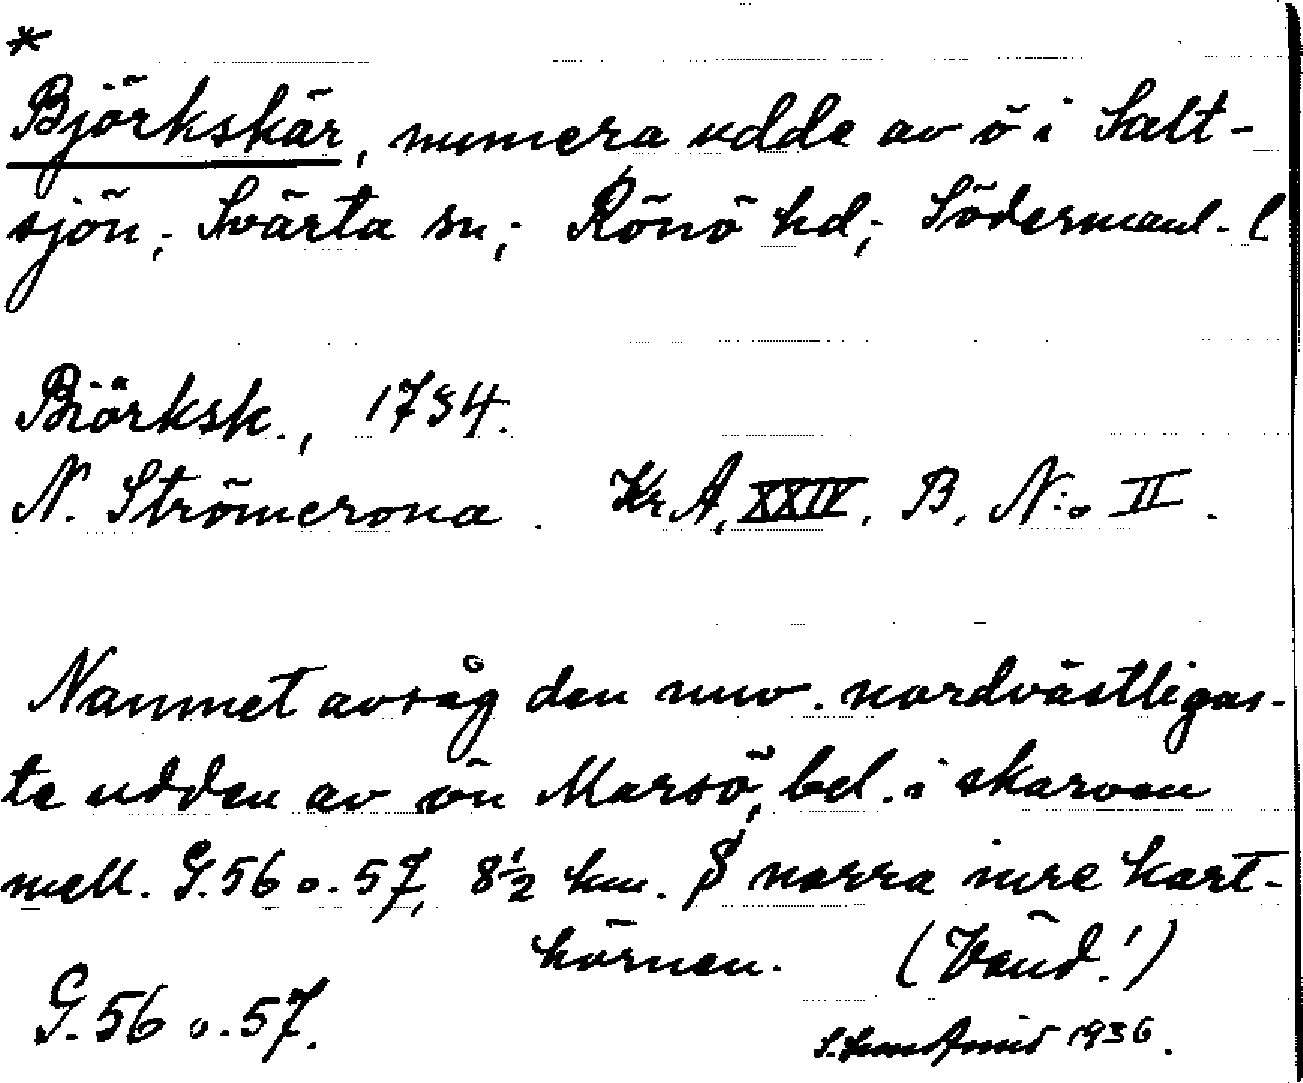 *
Björkskär, numera udde av ö i Salt-
sjön; Svärta sn; Rönö hd; Södermanl. l
Biörksk., 1734.
N. Strömcrona. Kr A, XXIV, B, N:o II.
Namnet avsåg den nuv. nordvästligas-
te udden av ön Marsö, bel. i skarven
mell. G. 56 o. 57, 8½ km. S norra inre kart-
hörnen. (Vänd!)
G. 56 o. 57.
1936.